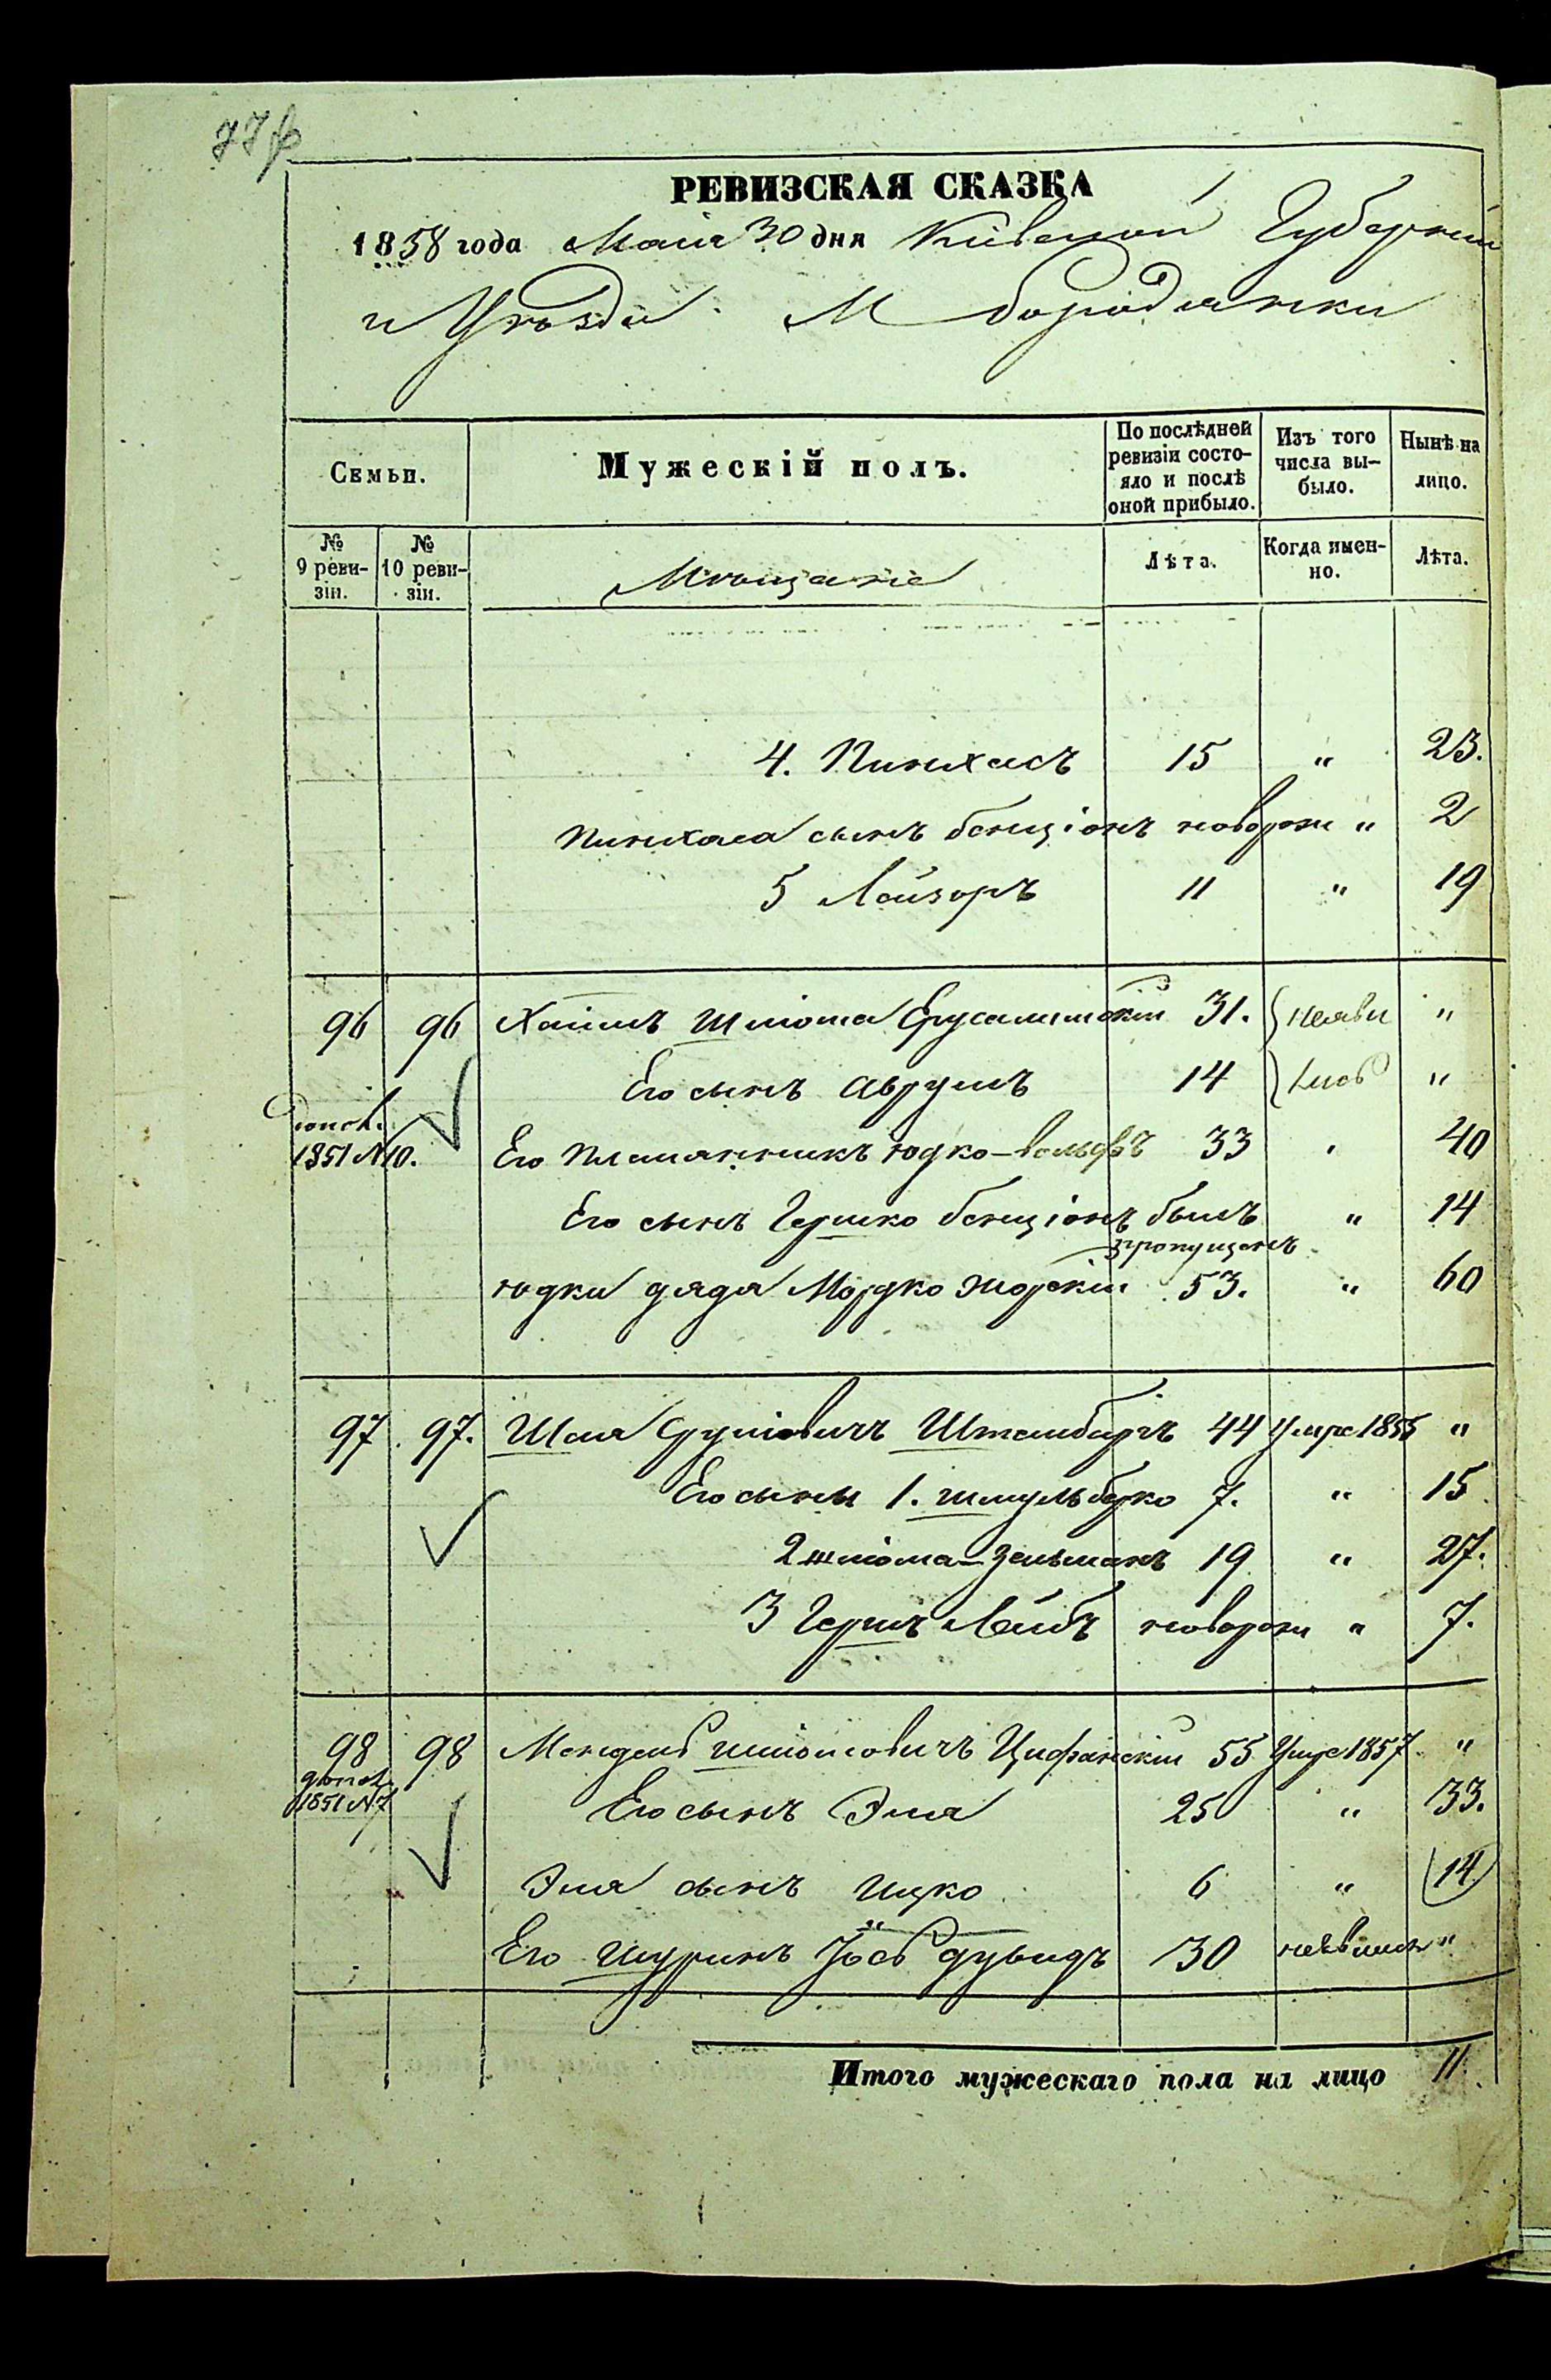 РЕВИЗСКАЯ СКАЗКА
1858 года Маія 30 дня Кіевской Губерніи
и Уѣзда. М Бородянки
Семьи.
Мужескій полъ.
По послѣдней ревизіи состояло и послѣ оной прибыло.
Изъ того числа выбыло.
Нынѣ на лицо.
№ 9 ревизіи.
№ 10 ревизіи.
Мѣщане
Лѣта.
Когда именно.
Лѣта.
4. Пинхасъ 15 " 23.
Пинхаса сынъ Бенціонъ новорож " 2
5 Лейзоръ 11 " 19
96 96 Хаимъ Шліома Ерусалимскій 31. неяви "
Его сынъ Аврумъ 14 "
допол. 1851 № 10. Его племянникъ Юдко-Вольфъ 33 " 40
Его сынъ Гершко Бенціонъ былъ пропущенъ " 14
Юдки дядя Мордко 53. " 60
97. 97. Шая Сруліовичъ Штейнбергъ 44 Умре 1855 "
Его сыны 1. Шмуль Берко 7. " 15
2 Шліома-Зельманъ 19 " 27.
3 Гершъ Лейбъ новорож " 7.
98 98 Мендель Шліомовичъ Цифанскій 55 Умре 1857. "
допол. 1851 № 7 Его сынъ Эля 25 " 33.
Эля сынъ Ицко 6 " 14
Его Шуринъ Іось Дувидъ 30 неявился "
Итого мужескаго пола на лицо 11.